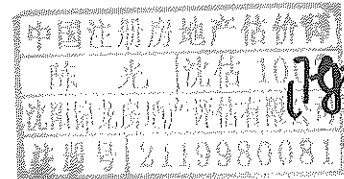 中国注册房地产估价师
陈 光 沈估 10
沈阳 房地产评估有限
注册号 2119980081
178